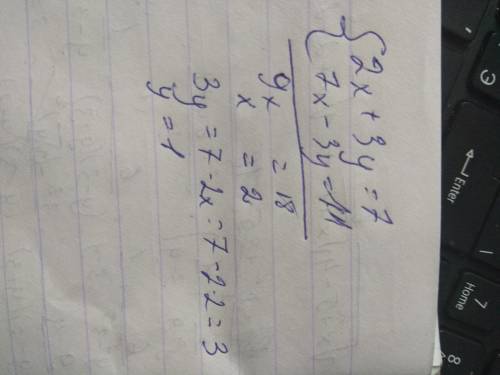 {2x + 3y = 7
7x - 3y = 11
9x = 18
x = 2
3y = 7 - 2x = 7 - 2·2 = 3
y = 1
Enter
Home
7
Э